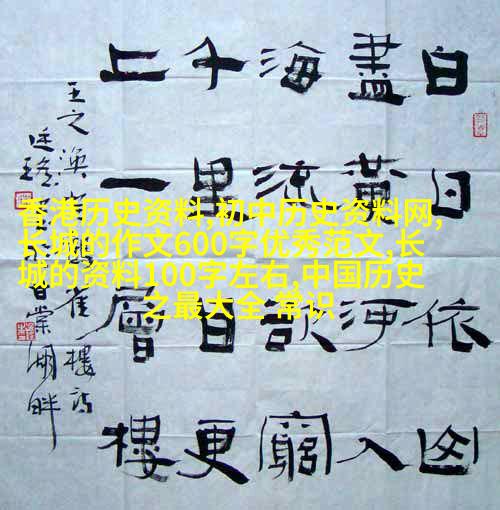 白日依山
盡黃河入
海流欲窮
千里目更
上一層樓
王之渙雀樓詩
棠湖畔
香港历史资料,初中历史资料网,
长城的作文600字优秀范文,长
城的资料100字左右,中国历史
之最大全 常识